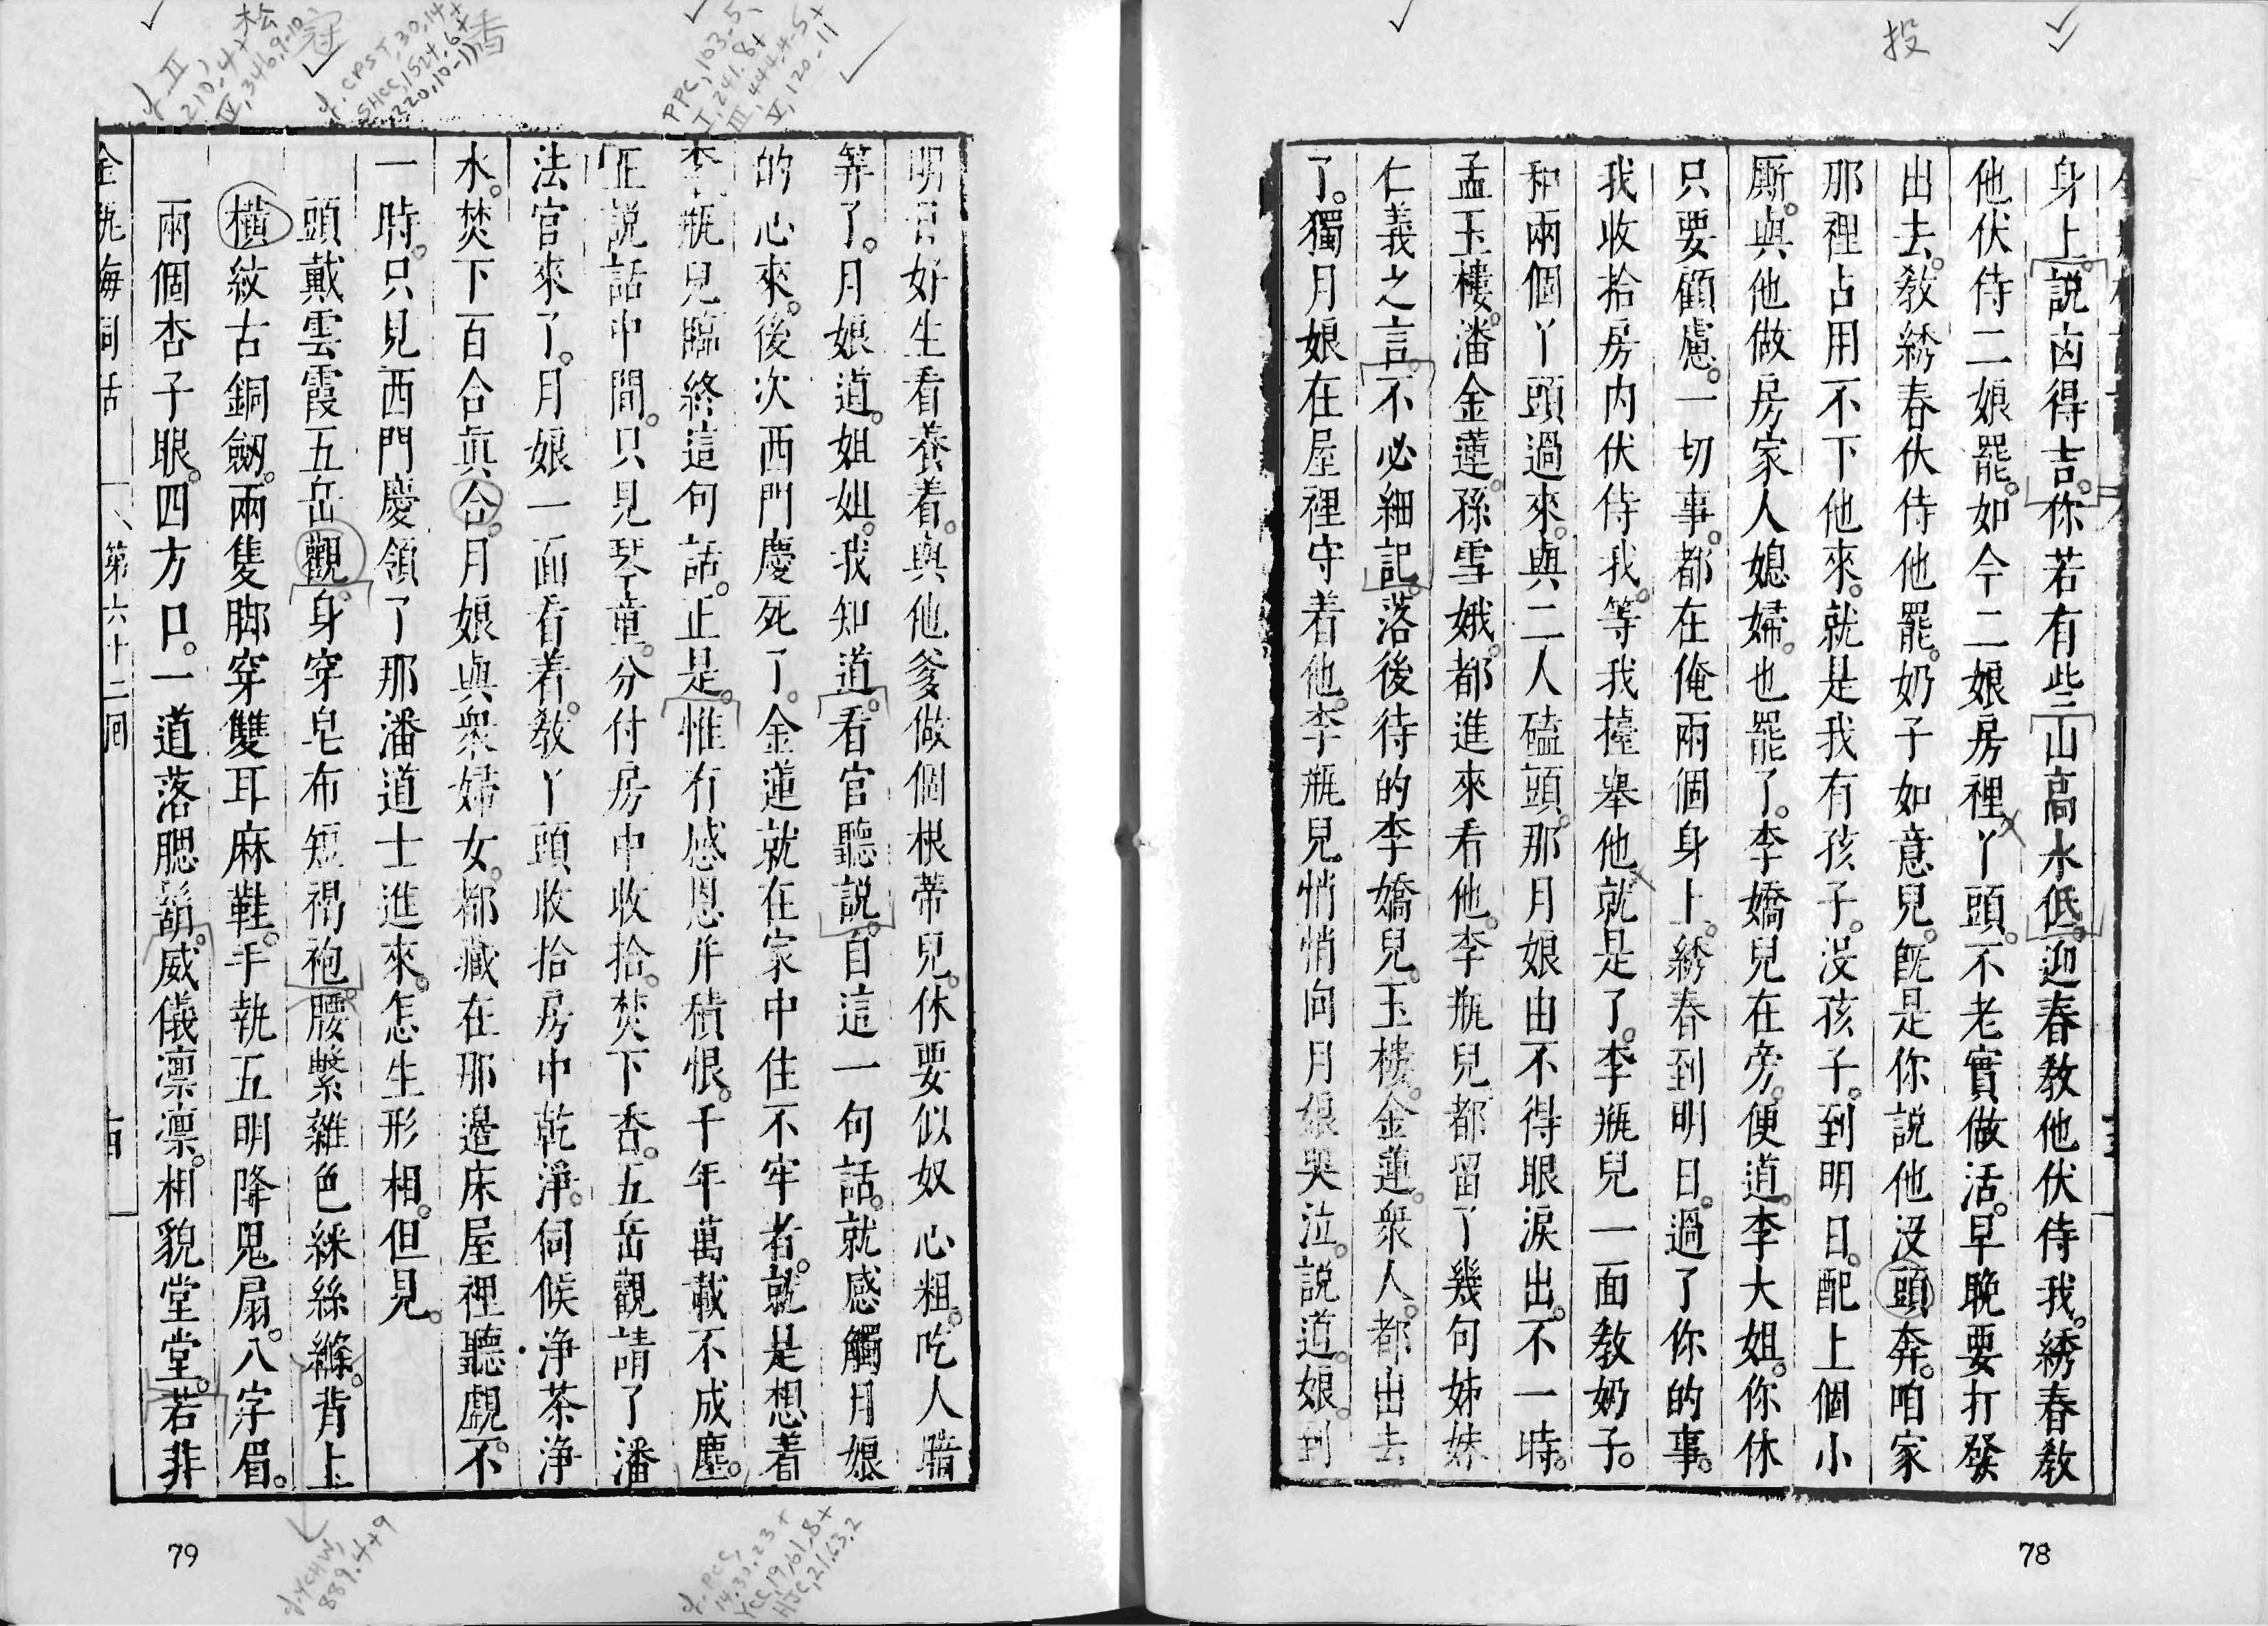 投
身上。說凶得吉。你若有些山高水低。迎春教他伏侍我。綉春教
他伏侍二娘罷。如今二娘房裡丫頭。不老實做活。早晚要打發
出去。教綉春伏侍他罷。奶子如意兒。既是你說他没頭奔。咱家
那裡占用不下他來。就是我有孩子。没孩子。到明日。配上個小
厮。與他做房家人媳婦。也罷了。李嬌兒在旁。便道。李大姐。你休
只要顧慮。一切事。都在俺兩個身上。綉春到明日。過了你的事。
我收拾房内伏侍我。等我擡舉他就是了。李瓶兒一面教奶子。
和兩個丫頭過來。與二人磕頭。那月娘由不得眼淚出。不一時。
孟玉樓。潘金蓮。孫雪娥。都進來看他。李瓶兒。都留了幾句姊妹
仁義之言。不必細記。落後待的李嬌兒。玉樓。金蓮。衆人。都出去
了。獨月娘在屋裡守着他。李瓶兒悄悄向月娘哭泣。說道。娘。到
78
明日好生看養着。與他爹做個根蒂兒。休要似奴心粗。吃人暗
筭了。月娘道。姐姐。我知道。看官聽說。自這一句話。就感觸月娘
的心來。後次西門慶死了。金蓮就在家中住不牢者。就是想着
李瓶兒臨終這句話。正是。惟有感恩并積恨。千年萬載不成塵。
正說話中間。只見琴童。分付房中收拾。焚下香。五岳觀請了潘
法官來了。月娘一面看着。教丫頭收拾房中乾淨。伺候净茶净
水。焚下百合眞合。月娘與衆婦女。都藏在那邊床屋裡聽覷。不
一時。只見西門慶領了那潘道士進來。怎生形相。但見。
頭戴雲霞五岳觀。身穿皂布短褐袍。腰繫雜色綵絲縧。背上
横紋古銅劒。兩隻脚穿雙耳麻鞋。手執五明降鬼扇。八字眉。
兩個杏子眼。四方口。一道落腮鬍。威儀凛凛。相貌堂堂。若非
金瓶梅詞話
第六十二囘
79
PPC, 103.5,
I, 241.8+
III, 444.4-5+
V, 120-11
香
cf. CPST, 30.14+
SHCC, 1524.6+
1220.10-11
冠
桧
cf. II,
210.4+
IV, 346.9-10,
cf. PCC,
14.30.23+
YCC, 19.61.8+
HJC, 21.63.2
cf. YCHW,
889.4+9